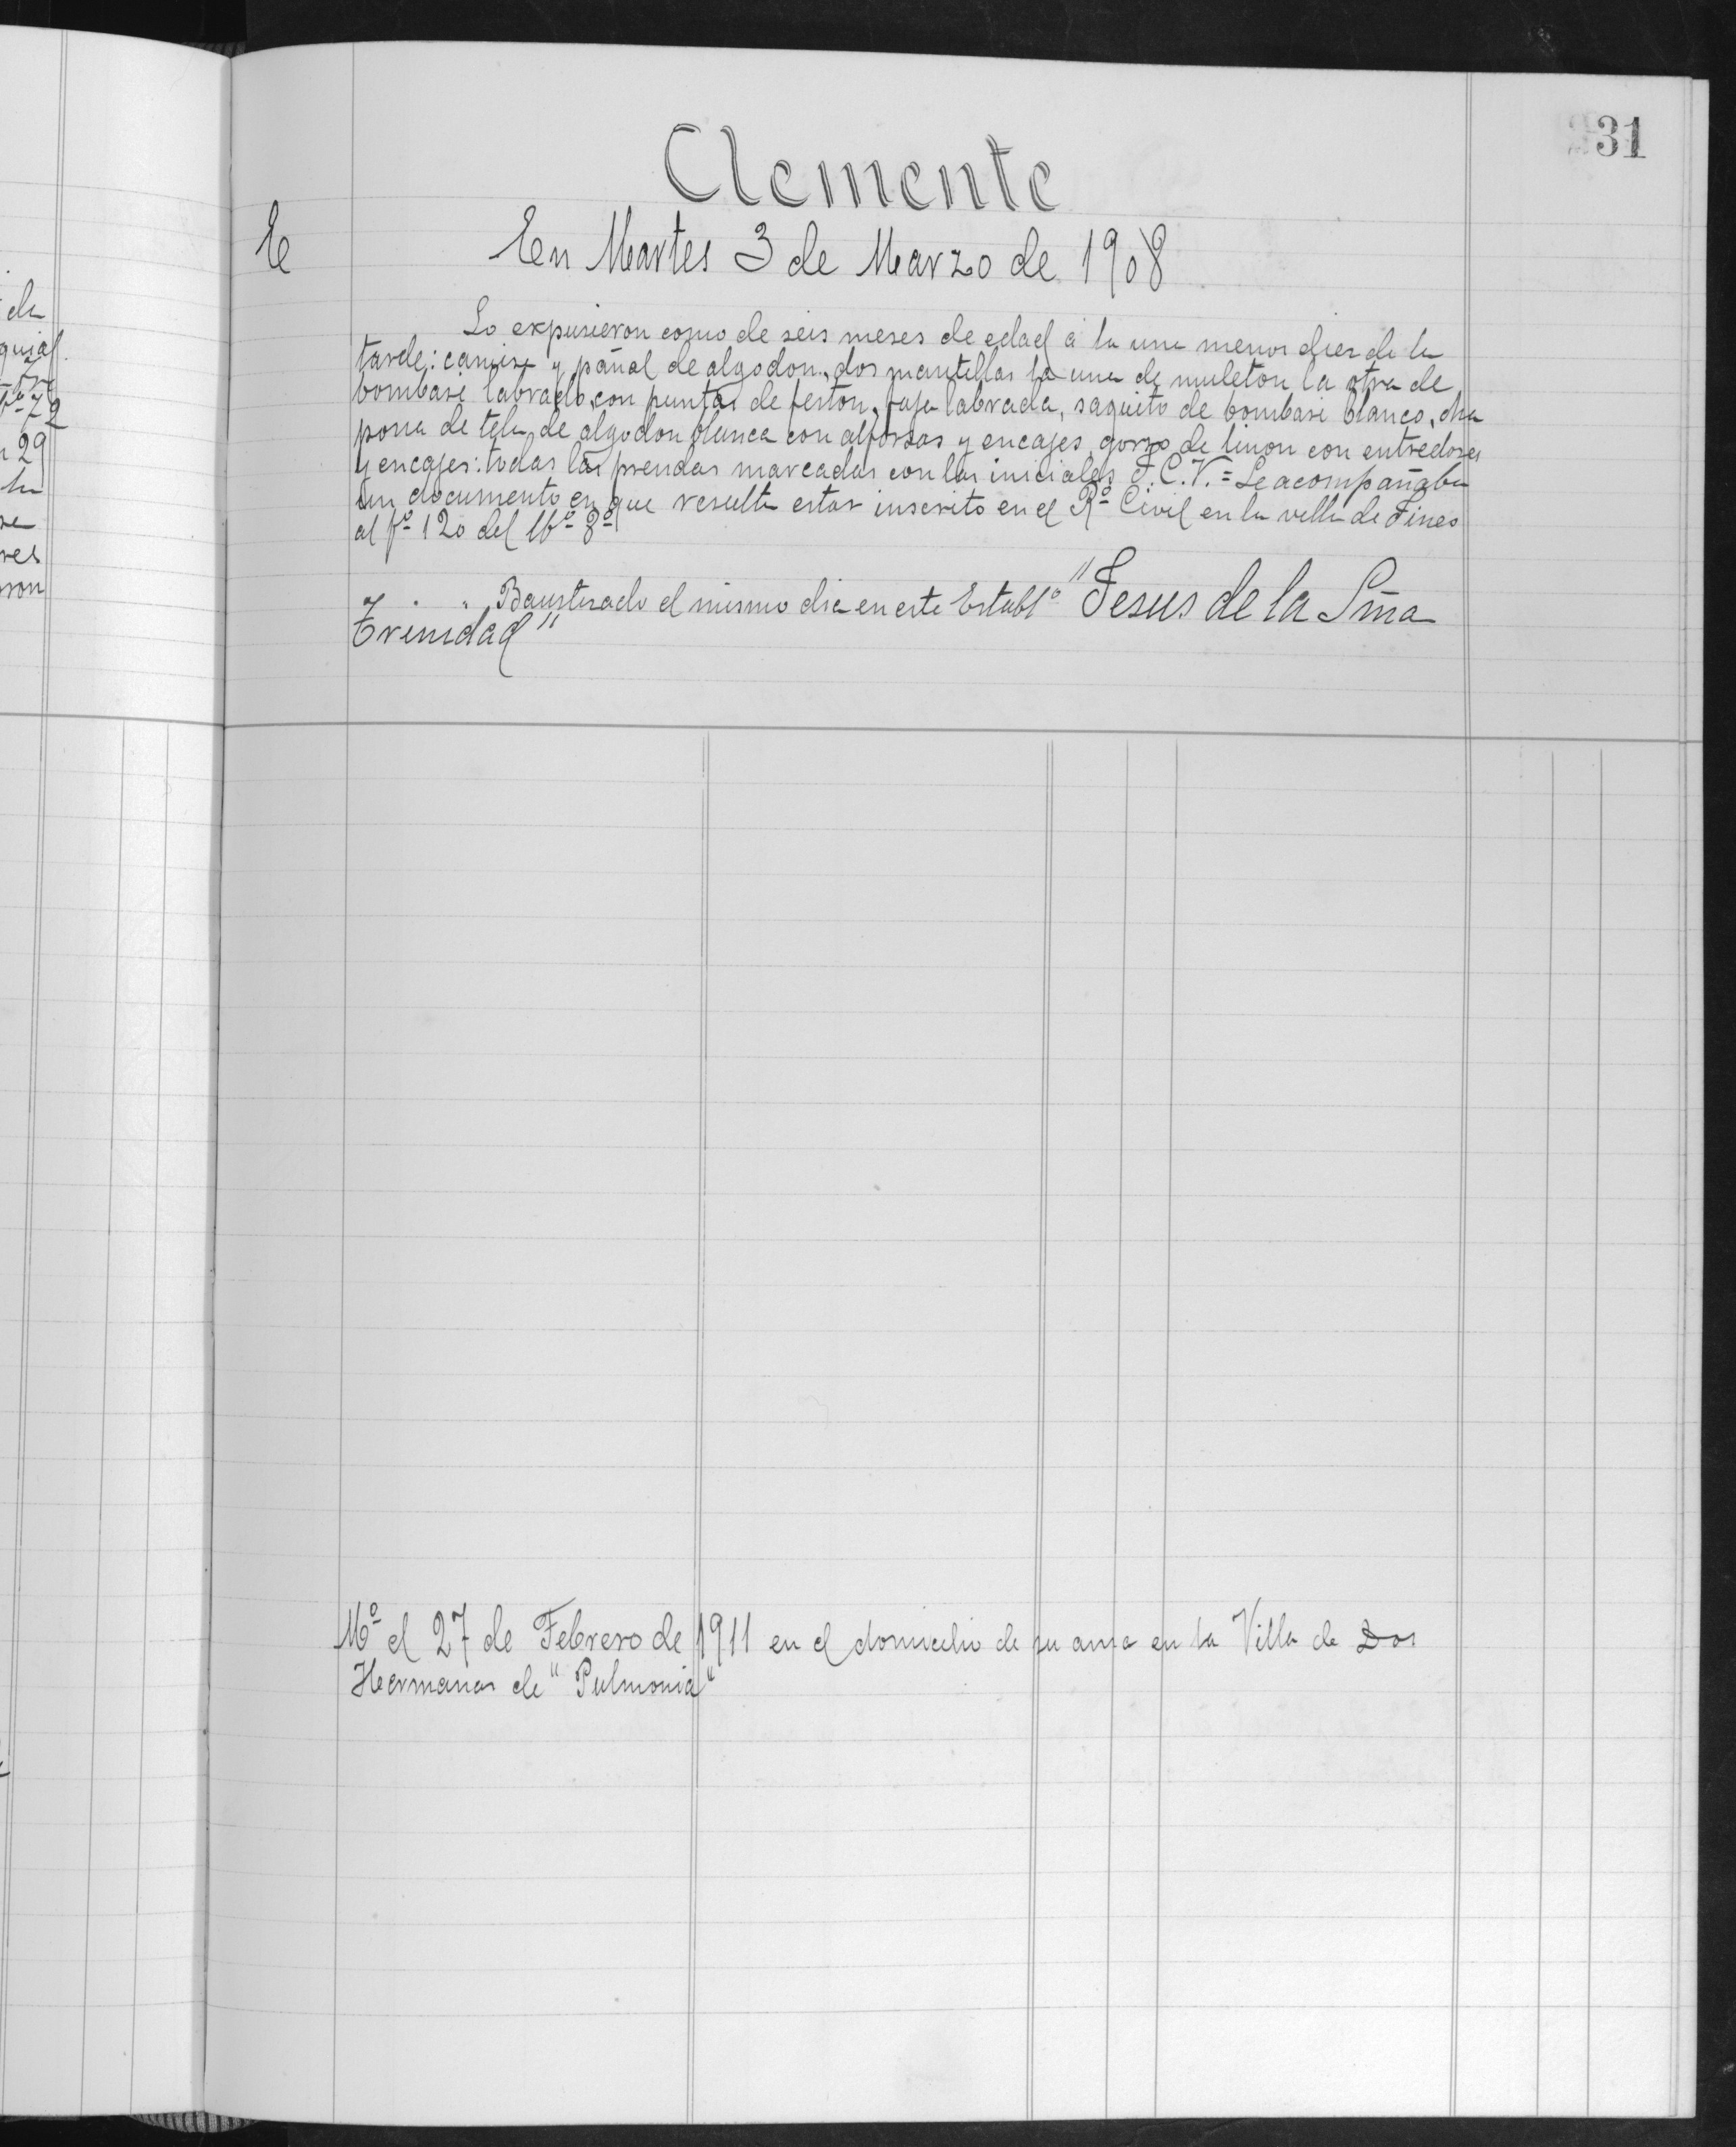 31
Clemente
E
En Martes 3 de Marzo de 1908
Lo expusieron como de seis meses de edad á la una menos diez de la
tarde: camisa y pañal de algodon, dos mantillas la una de muleton la otra de
bombasi labrado, con puntas de feston, faja labrada, saquito de bombasi blanco, cha
porra de tela de algodon blanca con alforsas y encajes, gorro de linon con entredoses
y encajes: todas las prendas marcadas con las iniciales J. C. V. = Le acompañaba
un documento en que resulta estar inscrito en el Rº Civil en la villa de Fines
al fº 120 del lbº 8º
Bautizado el mismo dia en este Establº "Jesus de la Sma
Trinidad"
Mº el 27 de Febrero de 1911 en el domicilio de su ama en la Villa de Dos
Hermanas de "Pulmonia"